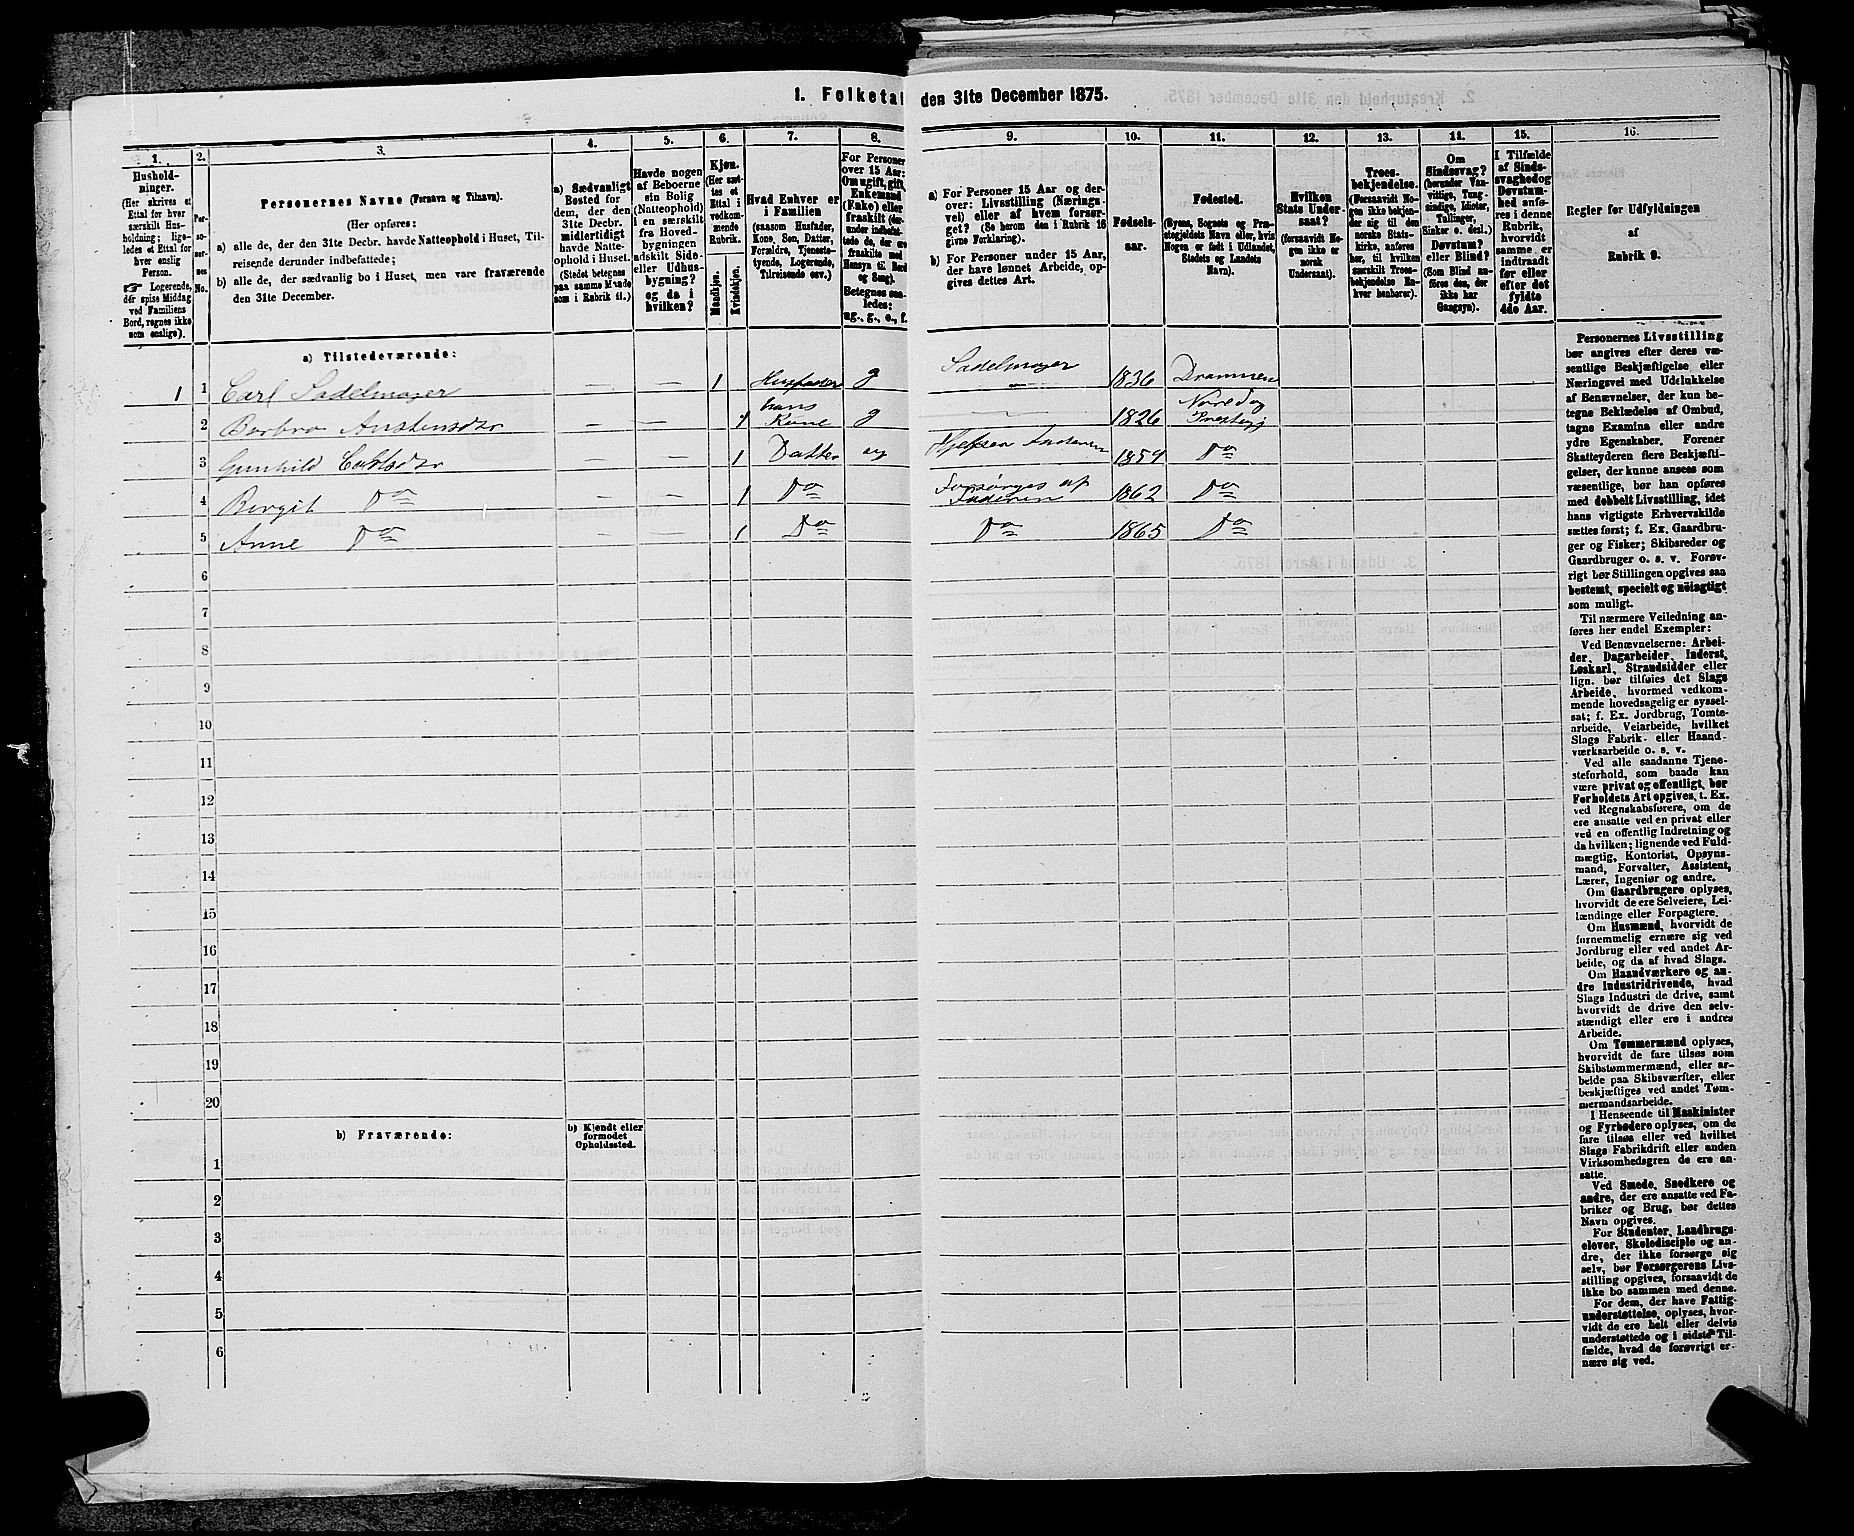 1. Folketal den 31te December 1875.
1.
2.
3.
4.
5.
6.
7.
8.
9.
10.
11.
12.
13.
14.
15.
16.
Hushold-
ninger.
(Her skrives et
Ettal for hver
særskilt Hus-
holdning; lige-
ledes et Ettal for
hver enslig
Person.
☞ Logerende,
der spise Middag
ved Familiens
Bord, regnes ikke
som enslige).
Per-
so-
ner-
nes
No.
Personernes Navne (Fornavn og Tilnavn).
(Her opføres:
a) alle de, der den 31te Decbr. havde Natteophold i Huset, Til-
reisende derunder indbefattede;
b) alle de, der sædvanlig bo i Huset, men vare fraværende
den 31te December.
a) Sædvanligt
Bosted for
dem, der den
31te Decbr.
midlertidigt
havde Natte-
ophold i Huset.
(Stedet betegnes
paa samme Maade
som i Rubrik 11.)
Havde nogen
af Beboerne
sin Bolig
(Natteophold)
i en særskilt
fra Hoved-
bygningen
adskilt Side-
eller Udhus-
bygning?
og da i
hvilken?
Kjøn.
(Her sæt-
tes et
Ettal i
vedkom-
mende
Rubrik.
Mandkjøn.
Kvindekjøn.
Hvad Enhver er
i Familien
(saasom Husfader,
Kone, Søn, Datter,
Forældre, Tjeneste-
tyende, Logerende,
Tilreisende osv.)
For Personer
over 15 Aar:
Om ugift, gift,
Enkemand
(Enke) eller
fraskilt (der-
under indbefat-
tede de, der ere
fraskilte med
Hensyn til Bord
og Seng).
Betegnes saa-
ledes:
ug., g., e., f.
a) For Personer 15 Aar og der-
over: Livsstilling (Nærings-
vei) eller af hvem forsør-
get? (Se herom den i Rubrik 16
givne Forklaring).
b) For Personer under 15 Aar,
der have lønnet Arbeide, op-
gives dettes Art.
Fødsels-
aar.
Fødested.
(Byens, Sognets og Præ-
stegjeldets Navn eller, hvis
Nogen er født i Udlandet,
Stedets og Landets
Navn).
Hvilken
Stats Under-
saat?
(forsaavidt No-
gen ikke er
norsk
Undersaat).
Troes-
bekjendelse.
(Forsaavidt No-
gen ikke bekjen-
der sig til den
norske Stats-
kirke, anføres
her, til hvilken
særskilt Troes-
bekjendelse En-
hver henhører).
Om
Sindssvag?
(herunder Van-
vittige, Tung-
sindige, Idioter,
Tullinger,
Sinker o. desl.)
Døvstum?
eller Blind?
(Som Blind an-
føres den, der
ikke har
Gangsyn).
I Tilfælde
af Sinds-
svaghed og
Døvstum-
hed anfø-
res i denne
Rubrik,
hvorvidt
samme er
indtraadt
før eller
efter det
fyldte
4de Aar.
Regler for Udfyldningen
af
Rubrik 9.
a) Tilstedeværende:
1 1 Carl Sadelmager — — 1 Husfader g Sadelmager — 1836 Drammen
2 Barbro Anstensdtr — — 1 hans Kone g — 1826
3 Gunhild Carlsdtr — — 1 Datter ug 1854 Do
4 Bergit Do — — 1 Do Forsørges af Faderen 1862 Do
5 Anne Do — — 1 Do Do 1865 Do
6
7
8
9
10
11
12
13
14
15
16
17
18
19
20
b) Fraværende:
b) Kjendt eller
formodet
Opholdssted.
1
2
3
4
5
6
Personernes Livsstilling
bør angives efter deres væ-
sentlige Beskjæftigelse eller
Næringsvei med Udelukkelse
af Benævnelser, der kun be-
tegne Beklædelse af Ombud,
tagne Examina eller andre
ydre Egenskaber. Forener
Skatteyderen flere Beskjæfti-
gelser, der kunne ansees som
væsentlige, bør han opføres
med dobbelt Livsstilling, idet
hans vigtigste Erhvervskilde
sættes først; f. Ex. Gaardbru-
ger og Fisker; Skibsreder og
Gaardbruger o. s. v. Forøv-
rigt bør Stillingen opgives saa
bestemt, specielt og nöiagtigt
som muligt.
Til nærmere Veiledning an-
føres her endel Exempler:
Ved Benævnelserne: Arbei-
der, Dagarbeider, Inderst,
Løskarl, Strandsidder eller
lign. bør tilføies det Slags
Arbeide, hvormed vedkom-
mende hovedsagelig er syssel-
sat; f. Ex. Jordbrug, Tomte-
arbeide, Veiarbeide, hvilket
Slags Fabrik- eller Haand-
værksarbeide o. s. v.
Ved alle saadanne Tjene-
steforhold, som baade kan
være privat og offentligt, bør
Forholdets Art opgives, t. Ex.
ved Regnskabsførere, om de
ere ansatte ved en privat eller
ved en offentlig Indretning og
da hvilken; lignende ved Fuld-
mægtig, Kontorist, Opsyns-
mand, Forvalter, Assistent,
Lærer, Ingeniør og andre.
Om Gaardbrugere oplyses,
hvorvidt de ere Selveiere, Lei-
lændinge eller Forpagtere.
Om Husmænd, hvorvidt de
fornemmelig ernære sig ved
Jordbrug eller ved andet Ar-
beide, og da af hvad Slags.
Om Haandværkere og an-
dre Industridrivende, hvad
Slags Industri de drive, samt
hvorvidt de drive den selv-
stændigt eller ere i andres
Arbeide.
Om Tømmermænd oplyses,
hvorvidt de fare tilsøs som
Skibstømmermænd, eller ar-
beide paa Skibsværfter, eller
beskjæftiges ved andet Tøm-
mermandsarbeide.
I Henseende til Maskinister
og Fyrbødere oplyses, om de
fare tilsøs eller ved hvilket
Slags Fabrikdrift eller anden
Virksomhedsgren de ere an-
satte.
Ved Smede, Snedkere og
andre, der ere ansatte ved Fa-
briker og Brug, bør dettes
Navn opgives.
For Studenter, Landbrugs-
elever, Skoledisciple og an-
dre, der ikke forsørge sig
selv, bør Forsørgerens Livs-
stilling opgives, forsaavidt de
ikke bo sammen med denne.
For dem, der have Fattig-
understøttelse, oplyses, hvor-
vidt de ere helt eller delvis
understøttede og i sidste Til-
fælde, hvad de forøvrigt er-
nære sig ved.